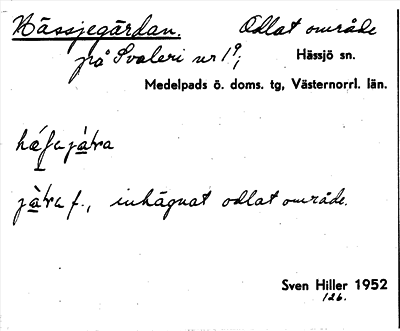 Hässjegärdan. Odlat område
på Svaleri nr 1⁹; Hässjö sn.
Medelpads ö. doms. tg, Västernorrl. län.
jàtra f., inhägnat odlat område.
Sven Hiller 1952
126.